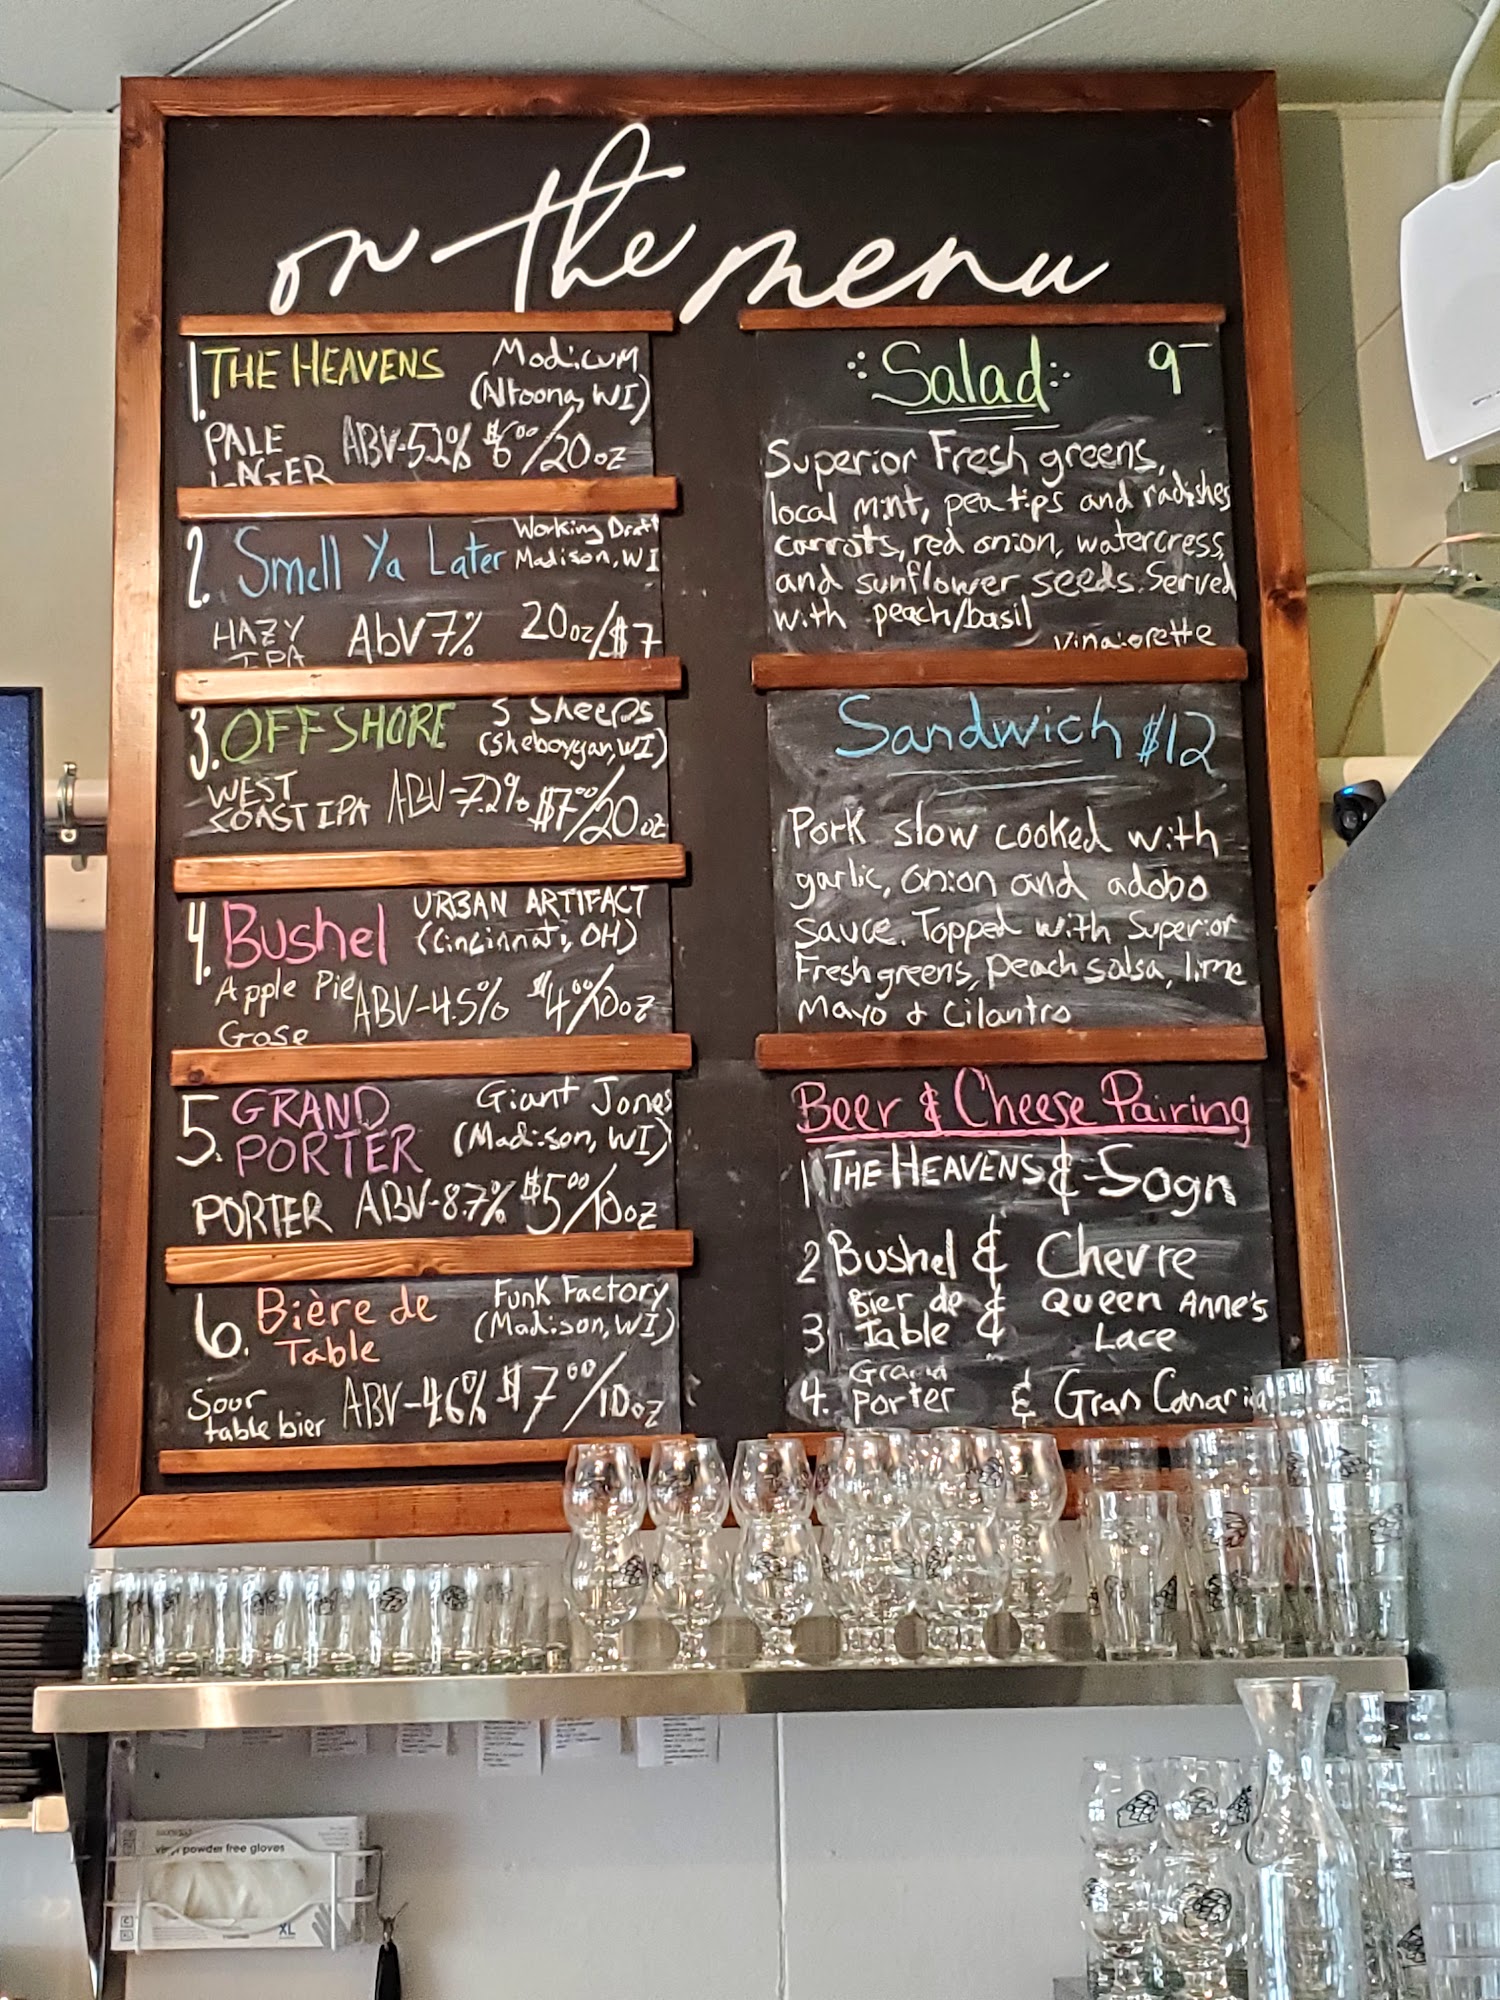 on the menu
1. THE HEAVENS Modicum
(Altoona, WI)
PALE ABV-5.2% $6⁰⁰/20oz
LAGER
2. Smell Ya Later Working Draft
Madison, WI
HAZY AbV 7% 20oz/$7
IPA
3. OFFSHORE 3 Sheeps
(Sheboygan, WI)
WEST ABV-7.2% $7⁰⁰/20oz
COAST IPA
4. Bushel URBAN ARTIFACT
(Cincinnati, OH)
Apple Pie ABV-4.5% $4⁰⁰/10oz
Gose
5. GRAND Giant Jones
PORTER (Madison, WI)
PORTER ABV-8.7% $5⁰⁰/10oz
6. Bière de Funk Factory
Table (Madison, WI)
Sour ABV-4.6% $7⁰⁰/10oz
table bier
Salad 9-
Superior Fresh greens,
local mint, pea tips and radishes
carrots, red onion, watercress,
and sunflower seeds. Served
with peach/basil
vinaigrette
Sandwich $12
Pork slow cooked with
garlic, onion and adobo
sauce. Topped with Superior
Fresh greens, peach salsa, lime
Mayo & Cilantro
Beer & Cheese Pairing
1 THE HEAVENS & Sogn
2 Bushel & Chevre
3 Bier de & Queen Anne's
Table & Lace
4. Grand
Porter & Gran Canaria
vinyl powder free gloves
XL